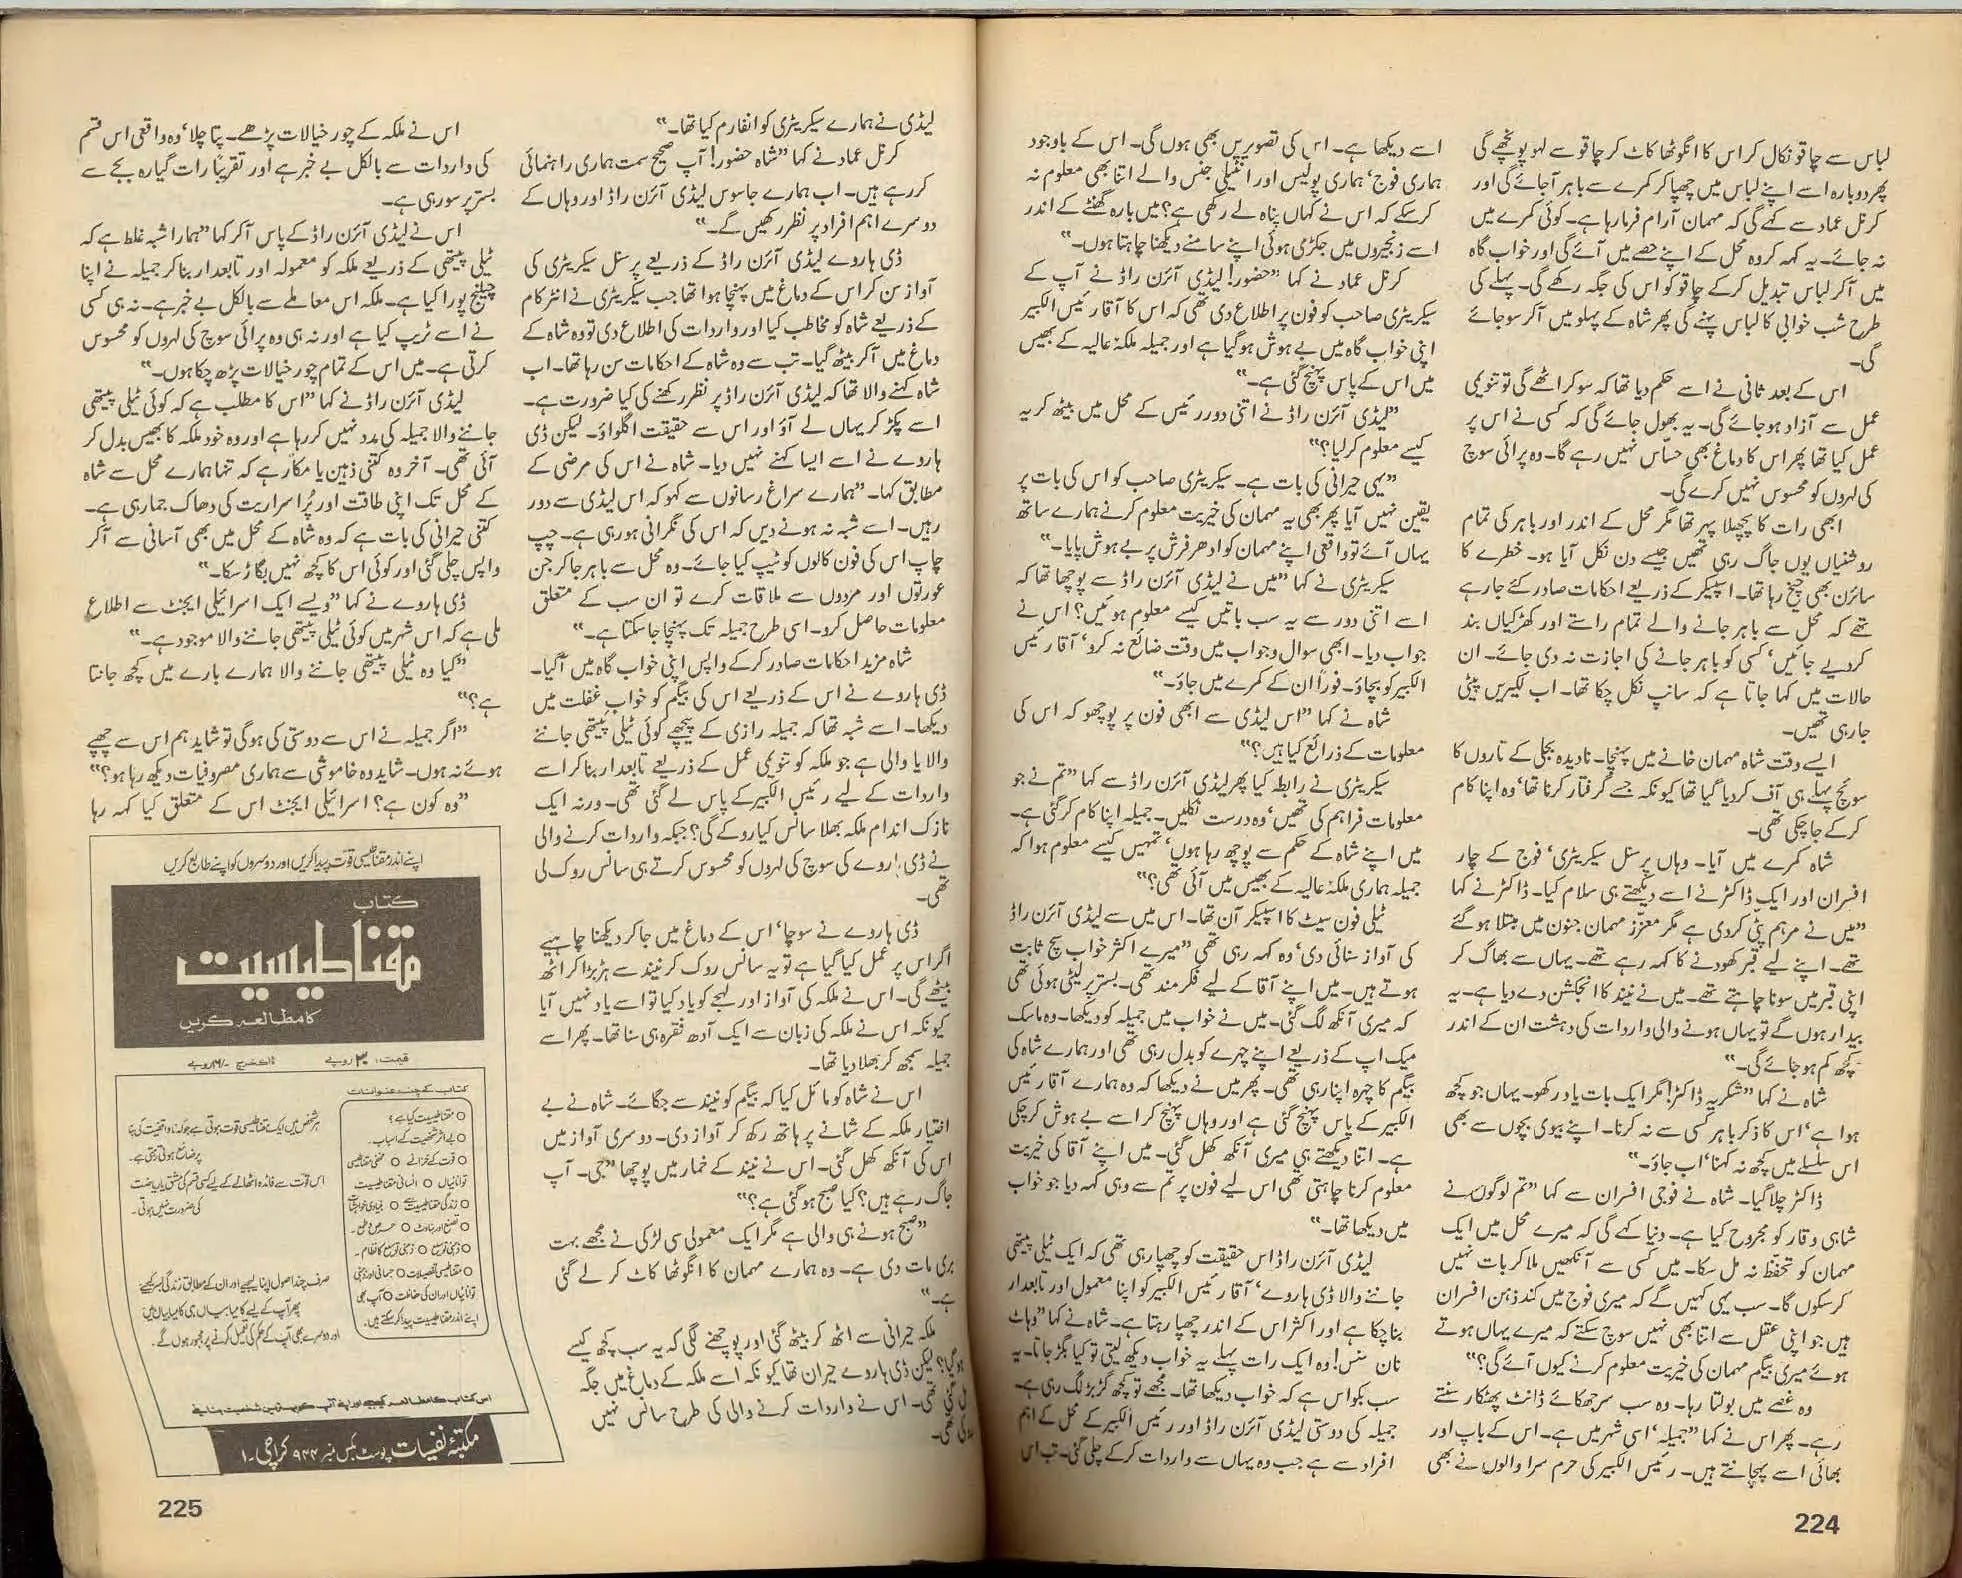 لباس سے چاقو نکال کر اس کا انگوٹھا کاٹ کر چاقو سے لہو پونچھے گی
پھر دوبارہ اسے اپنے لباس میں چھپا کر کمرے سے باہر آ جائے گی اور
کرنل عماد سے کہے گی کہ مہمان آرام فرما رہا ہے۔ کوئی کمرے میں
نہ جائے۔ یہ کہہ کر وہ محل کے اپنے حصے میں آئے گی اور خواب گاہ
میں آ کر لباس تبدیل کر کے چاقو کو اس کی جگہ رکھے گی۔ پہلے کی
طرح شب خوابی کا لباس پہنے گی پھر شاہ کے پہلو میں آ کر سو جائے
گی۔
اس کے بعد ثانی نے اسے حکم دیا تھا کہ سو کر اٹھے گی تو تنویمی
عمل سے آزاد ہو جائے گی۔ یہ بھول جائے گی کہ کسی نے اس پر
عمل کیا تھا پھر اس کا دماغ بھی حساس نہیں رہے گا۔ وہ پرائی سوچ
کی لہروں کو محسوس نہیں کرے گی۔
ابھی رات کا پچھلا پہر تھا مگر محل کے اندر اور باہر کی تمام
روشنیاں یوں جاگ رہی تھیں جیسے دن نکل آیا ہو۔ خطرے کا
سائرن بھی چیخ رہا تھا۔ اسپیکر کے ذریعے احکامات صادر کئے جا رہے
تھے کہ محل سے باہر جانے والے تمام راستے اور کھڑکیاں بند
کر دیے جائیں، کسی کو باہر جانے کی اجازت نہ دی جائے۔ ان
حالات میں کہا جاتا ہے کہ سانپ نکل چکا تھا۔ اب لکیریں پیٹی
جا رہی تھیں۔
ایسے وقت شاہ مہمان خانے میں پہنچا۔ نادیدہ بجلی کے تاروں کا
سوئچ پہلے ہی آف کر دیا گیا تھا کیونکہ جسے گرفتار کرنا تھا، وہ اپنا کام
کر کے جا چکی تھی۔
شاہ کمرے میں آیا۔ وہاں پرسنل سیکریٹری، فوج کے چار
افسران اور ایک ڈاکٹر نے اسے دیکھتے ہی سلام کیا۔ ڈاکٹر نے کہا
”میں نے مرہم پٹی کر دی ہے مگر معزز مہمان جنون میں مبتلا ہو گئے
تھے۔ اپنے لیے قبر کھودنے کا کہہ رہے تھے۔ یہاں سے بھاگ کر
اپنی قبر میں سونا چاہتے تھے۔ میں نے نیند کا انجکشن دے دیا ہے۔ یہ
بیدار ہوں گے تو یہاں ہونے والی واردات کی دہشت ان کے اندر
کچھ کم ہو جائے گی۔“
شاہ نے کہا ”شکریہ ڈاکٹر! مگر ایک بات یاد رکھو۔ یہاں جو کچھ
ہوا ہے، اس کا ذکر باہر کسی سے نہ کرنا۔ اپنے بیوی بچوں سے بھی
اس سلسلے میں کچھ نہ کہنا، اب جاؤ۔“
ڈاکٹر چلا گیا۔ شاہ نے فوجی افسران سے کہا ”تم لوگوں نے
شاہی وقار کو مجروح کیا ہے۔ دنیا کہے گی کہ میرے محل میں ایک
مہمان کو تحفظ نہ مل سکا۔ میں کسی سے آنکھیں ملا کر بات نہیں
کر سکوں گا۔ سب یہی کہیں گے کہ میری فوج میں کند ذہن افسران
ہیں جو اپنی عقل سے اتنا بھی نہیں سوچ سکتے کہ میرے یہاں ہوتے
ہوئے میری بیگم مہمان کی خیریت معلوم کرنے کیوں آئے گی؟“
وہ غصے میں بولتا رہا۔ وہ سب سر جھکائے ڈانٹ پھٹکار سنتے
رہے۔ پھر اس نے کہا ”جمیلہ، اسی شہر میں ہے۔ اس کے باپ اور
بھائی اسے پہچانتے ہیں۔ رئیس الکبیر کی حرم سرا والوں نے بھی
اسے دیکھا ہے۔ اس کی تصویریں بھی ہوں گی۔ اس کے باوجود
ہماری فوج، ہماری پولیس اور انٹیلی جنس والے اتنا بھی معلوم نہ
کر سکے کہ اس نے کہاں پناہ لے رکھی ہے؟ میں بارہ گھنٹے کے اندر
اسے زنجیروں میں جکڑی ہوئی اپنے سامنے دیکھنا چاہتا ہوں۔“
کرنل عماد نے کہا ”حضور! لیڈی آئرن راڈ نے آپ کے
سیکریٹری صاحب کو فون پر اطلاع دی تھی کہ اس کا آقا رئیس الکبیر
اپنی خواب گاہ میں بے ہوش ہو گیا ہے اور جمیلہ ملکۂ عالیہ کے بھیس
میں اس کے پاس پہنچ گئی ہے۔“
”لیڈی آئرن راڈ نے اتنی دور رئیس کے محل میں بیٹھ کر یہ
کیسے معلوم کر لیا؟“
”یہی حیرانی کی بات ہے۔ سیکریٹری صاحب کو اس کی بات پر
یقین نہیں آیا پھر بھی یہ مہمان کی خیریت معلوم کرنے ہمارے ساتھ
یہاں آئے تو واقعی اپنے مہمان کو ادھر فرش پر بے ہوش پایا۔“
سیکریٹری نے کہا ”میں نے لیڈی آئرن راڈ سے پوچھا تھا کہ
اسے اتنی دور سے یہ سب باتیں کیسے معلوم ہوئیں؟ اس نے
جواب دیا۔ ابھی سوال و جواب میں وقت ضائع نہ کرو، آقا رئیس
الکبیر کو بچاؤ۔ فوراً ان کے کمرے میں جاؤ۔“
شاہ نے کہا ”اس لیڈی سے ابھی فون پر پوچھو کہ اس کی
معلومات کے ذرائع کیا ہیں؟“
سیکریٹری نے رابطہ کیا پھر لیڈی آئرن راڈ سے کہا ”تم نے جو
معلومات فراہم کی تھیں، وہ درست نکلیں۔ جمیلہ اپنا کام کر گئی ہے۔
میں اپنے شاہ کے حکم سے پوچھ رہا ہوں، تمہیں کیسے معلوم ہوا کہ
جمیلہ ہماری ملکۂ عالیہ کے بھیس میں آئی تھی؟“
ٹیلی فون سیٹ کا اسپیکر آن تھا۔ اس میں سے لیڈی آئرن راڈ
کی آواز سنائی دی، وہ کہہ رہی تھی ”میرے اکثر خواب سچ ثابت
ہوتے ہیں۔ میں اپنے آقا کے لیے فکرمند تھی۔ بستر پر لیٹی ہوئی تھی
کہ میری آنکھ لگ گئی۔ میں نے خواب میں جمیلہ کو دیکھا۔ وہ ماسک
میک اپ کے ذریعے اپنے چہرے کو بدل رہی تھی اور ہمارے شاہ کی
بیگم کا چہرہ اپنا رہی تھی۔ پھر میں نے دیکھا کہ وہ ہمارے آقا رئیس
الکبیر کے پاس پہنچ گئی ہے اور وہاں پہنچ کر اسے بے ہوش کر چکی
ہے۔ اتنا دیکھتے ہی میری آنکھ کھل گئی۔ میں اپنے آقا کی خیریت
معلوم کرنا چاہتی تھی اس لیے فون پر تم سے وہی کہہ دیا جو خواب
میں دیکھا تھا۔“
لیڈی آئرن راڈ اس حقیقت کو چھپا رہی تھی کہ ایک ٹیلی پیتھی
جاننے والا ڈی ہاروے، آقا رئیس الکبیر کو اپنا معمول اور تابعدار
بنا چکا ہے اور اکثر اس کے اندر چھپا رہتا ہے۔ شاہ نے کہا ”وہاٹ
نان سنس! وہ ایک رات پہلے یہ خواب دیکھ لیتی تو کیا بگڑ جاتا۔ یہ
سب بکواس ہے کہ خواب دیکھا تھا۔ مجھے تو کچھ گڑبڑ لگ رہی ہے۔
جمیلہ کی دوستی لیڈی آئرن راڈ اور رئیس الکبیر کے محل کے اہم
افراد سے ہے جب وہ یہاں سے واردات کر کے چلی گئی۔ تب اس
224
لیڈی نے ہمارے سیکریٹری کو انفارم کیا تھا۔“
کرنل عماد نے کہا ”شاہ حضور! آپ صحیح سمت ہماری راہنمائی
کر رہے ہیں۔ اب ہمارے جاسوس لیڈی آئرن راڈ اور وہاں کے
دوسرے اہم افراد پر نظر رکھیں گے۔“
ڈی ہاروے لیڈی آئرن راڈ کے ذریعے پرسنل سیکریٹری کی
آواز سن کر اس کے دماغ میں پہنچا ہوا تھا جب سیکریٹری نے انٹرکام
کے ذریعے شاہ کو مخاطب کیا اور واردات کی اطلاع دی تو وہ شاہ کے
دماغ میں آ کر بیٹھ گیا۔ تب سے وہ شاہ کے احکامات سن رہا تھا۔ اب
شاہ کہنے والا تھا کہ لیڈی آئرن راڈ پر نظر رکھنے کی کیا ضرورت ہے۔
اسے پکڑ کر یہاں لے آؤ اور اس سے حقیقت اگلواؤ۔ لیکن ڈی
ہاروے نے اسے ایسا کہنے نہیں دیا۔ شاہ نے اس کی مرضی کے
مطابق کہا۔ ”ہمارے سراغ رسانوں سے کہو کہ اس لیڈی سے دور
رہیں۔ اسے شبہ نہ ہونے دیں کہ اس کی نگرانی ہو رہی ہے۔ چپ
چاپ اس کی فون کالوں کو ٹیپ کیا جائے۔ وہ محل سے باہر جا کر جن
عورتوں اور مردوں سے ملاقات کرے تو ان سب کے متعلق
معلومات حاصل کرو۔ اسی طرح جمیلہ تک پہنچا جا سکتا ہے۔“
شاہ مزید احکامات صادر کر کے واپس اپنی خواب گاہ میں آ گیا۔
ڈی ہاروے نے اس کے ذریعے اس کی بیگم کو خوابِ غفلت میں
دیکھا۔ اسے شبہ تھا کہ جمیلہ رازی کے پیچھے کوئی ٹیلی پیتھی جاننے
والا یا والی ہے جو ملکہ کو تنویمی عمل کے ذریعے تابعدار بنا کر اسے
واردات کے لیے رئیس الکبیر کے پاس لے گئی تھی۔ ورنہ ایک
نازک اندام ملکہ بھلا سانس کیا روکے گی؟ جبکہ واردات کرنے والی
نے ڈی ہاروے کی سوچ کی لہروں کو محسوس کرتے ہی سانس روک لی
تھی۔
ڈی ہاروے نے سوچا، اس کے دماغ میں جا کر دیکھنا چاہیے
اگر اس پر عمل کیا گیا ہے تو یہ سانس روک کر نیند سے ہڑبڑا کر اٹھ
بیٹھے گی۔ اس نے ملکہ کی آواز اور لہجے کو یاد کیا تو اسے یاد نہیں آیا
کیونکہ اس نے ملکہ کی زبان سے ایک آدھ فقرہ ہی سنا تھا۔ پھر اسے
جمیلہ سمجھ کر بھلا دیا تھا۔
اس نے شاہ کو مائل کیا کہ بیگم کو نیند سے جگائے۔ شاہ نے بے
اختیار ملکہ کے شانے پر ہاتھ رکھ کر آواز دی۔ دوسری آواز میں
اس کی آنکھ کھل گئی۔ اس نے نیند کے خمار میں پوچھا ”جی۔ آپ
جاگ رہے ہیں؟ کیا صبح ہو گئی ہے؟“
”صبح ہونے ہی والی ہے مگر ایک معمولی سی لڑکی نے مجھے بہت
بری مات دی ہے۔ وہ ہمارے مہمان کا انگوٹھا کاٹ کر لے گئی
ہے۔“
ملکہ حیرانی سے اٹھ کر بیٹھ گئی اور پوچھنے لگی کہ یہ سب کچھ کیسے
ہو گیا؟ لیکن ڈی ہاروے حیران تھا کیونکہ اسے ملکہ کے دماغ میں جگہ
تھی۔ اس نے واردات کرنے والی کی طرح سانس نہیں
روکی تھی۔
اس نے ملکہ کے چور خیالات پڑھے۔ پتا چلا، وہ واقعی اس قسم
کی واردات سے بالکل بے خبر ہے اور تقریباً رات گیارہ بجے سے
بستر پر سو رہی ہے۔
اس نے لیڈی آئرن راڈ کے پاس آ کر کہا ”ہمارا شبہ غلط ہے کہ
ٹیلی پیتھی کے ذریعے ملکہ کو معمولہ اور تابعدار بنا کر جمیلہ نے اپنا
چیلنج پورا کیا ہے۔ ملکہ اس معاملے سے بالکل بے خبر ہے۔ نہ ہی کسی
نے اسے ٹریپ کیا ہے اور نہ ہی وہ پرائی سوچ کی لہروں کو محسوس
کرتی ہے۔ میں اس کے تمام چور خیالات پڑھ چکا ہوں۔“
لیڈی آئرن راڈ نے کہا ”اس کا مطلب ہے کہ کوئی ٹیلی پیتھی
جاننے والا جمیلہ کی مدد نہیں کر رہا ہے اور وہ خود ملکہ کا بھیس بدل کر
آئی تھی۔ آخر وہ کتنی ذہین یا مکار ہے کہ تنہا ہمارے محل سے شاہ
کے محل تک اپنی طاقت اور پُراسراریت کی دھاک جما رہی ہے۔
کتنی حیرانی کی بات ہے کہ وہ شاہ کے محل میں بھی آسانی سے آ کر
واپس چلی گئی اور کوئی اس کا کچھ نہیں بگاڑ سکا۔“
ڈی ہاروے نے کہا ”ویسے ایک اسرائیلی ایجنٹ سے اطلاع
ملی ہے کہ اس شہر میں کوئی ٹیلی پیتھی جاننے والا موجود ہے۔“
”کیا وہ ٹیلی پیتھی جاننے والا ہمارے بارے میں کچھ جانتا
ہے؟“
”اگر جمیلہ نے اس سے دوستی کی ہوگی تو شاید ہم اس سے چھپے
ہوئے نہ ہوں۔ شاید وہ خاموشی سے ہماری مصروفیات دیکھ رہا ہو؟“
”وہ کون ہے؟ اسرائیلی ایجنٹ اس کے متعلق کیا کہہ رہا
اپنے اندر مقناطیسی قوت پیدا کریں اور دوسروں کو اپنے طابع کریں
کتاب
مقناطیسیت
کا مطالعہ کریں
قیمت: ۲۰ روپے
ڈاک خرچ
کتاب کے چند عنوانات
○ مقناطیسیت کیا ہے؟
○ بے اثر شخصیت کے اسباب۔
○ قوت کے خزانے ○ مخفی مقناطیسی
توانائیاں ○ انسانی مقناطیسیت
○ زندگی مقناطیسیت ہے ○ بنیادی خواہشات
○ تصنع اور بناوٹ ○ حرص و طمع۔
○ ذہنی توسیع ○ ذہنی توسیع کا نظام۔
○ مقناطیسی تفصیلات ○ جسمانی اور ذہنی
توانائیاں اور ان کی حفاظت ○ آپ بھی
اپنے اندر مقناطیسیت پیدا کر سکتے ہیں۔
ہر شخص میں ایک مقناطیسی قوت ہوتی ہے جو کہ ناواقفیت کی بنا
پر ضائع ہوتی رہتی ہے۔
اس قوت سے فائدہ اٹھانے کے لیے کسی قسم کی مشق یا ریاضت
کی ضرورت نہیں ہوتی۔
صرف چند اصول اپنا لیجیے اور ان کے مطابق زندگی بسر کیجیے
پھر آپ کے لیے کامیابیاں ہی کامیابیاں ہیں
اور دوسرے بھی آپ کے حکم کی تعمیل کرنے پر مجبور ہوں گے۔
اس کتاب کا مطالعہ کیجیے اور اپنے آپ کو بہترین شخصیت بنایئے
مکتبۂ نفسیات پوسٹ بکس نمبر ۹۴۴ کراچی۔۱
225